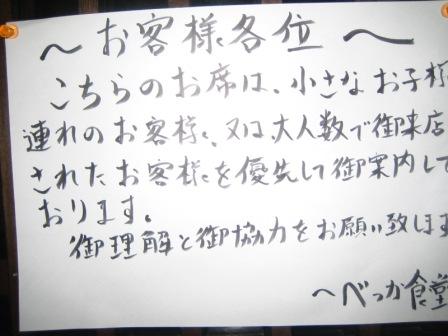 〜お客様各位〜
こちらのお席は、小さなお子様
連れのお客様、又は大人数で御来店
されたお客様を優先して御案内して
おります。
御理解と御協力をお願い致します
〜べっか食堂